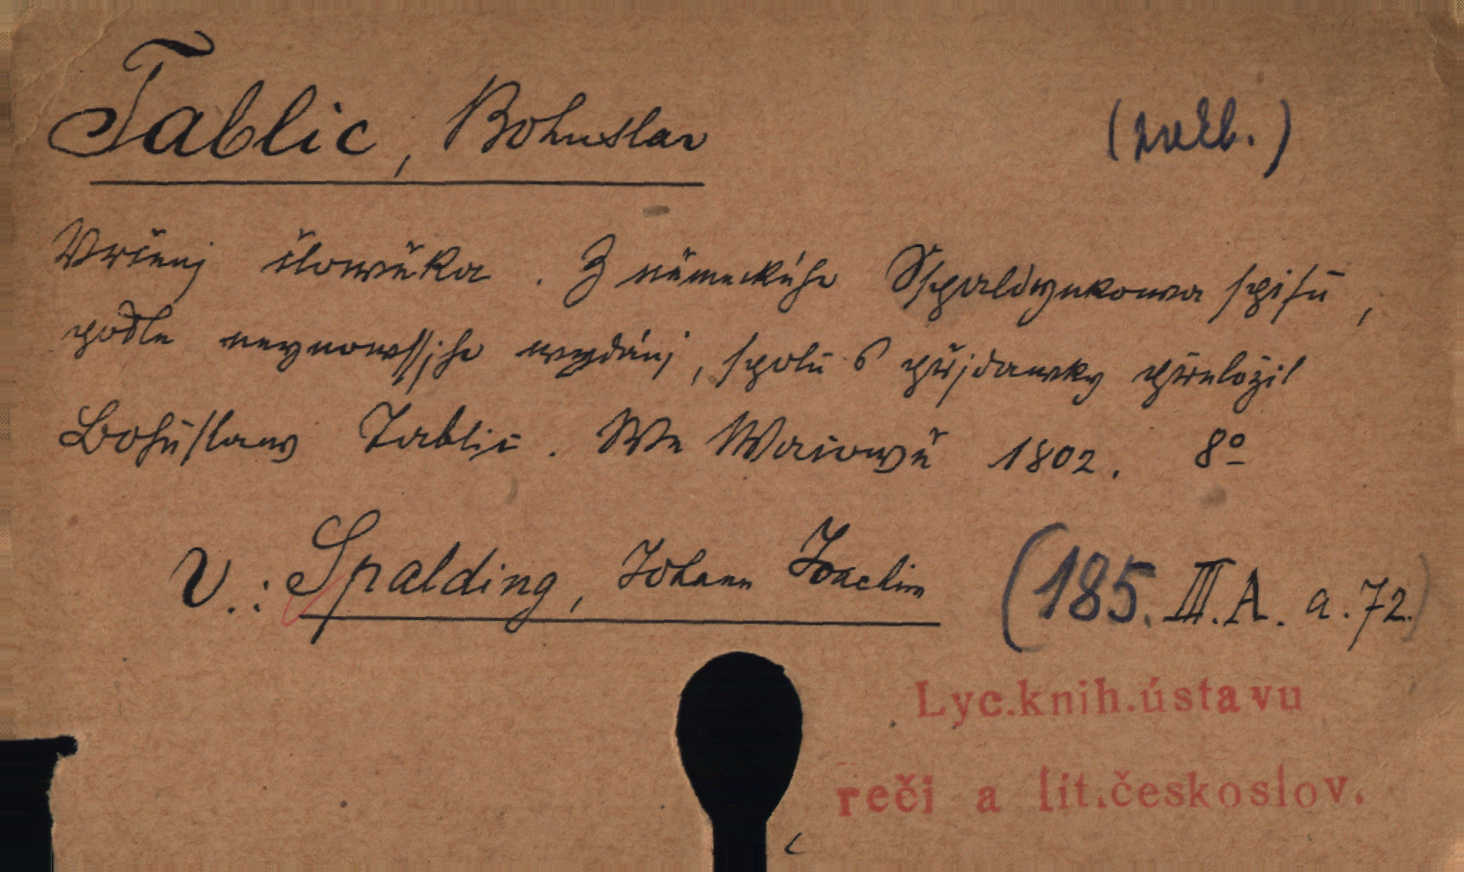 Tablic, Bohuslav
Určenj člowěka. Z německého Sspaldynkowa spisu,
podle neynowssjho wydánj, spolu s přjdawky přeložil
Bohuslaw Tablic. We Wacowě 1802. 8º
V.: Spalding, Johann Joachim (185. III. A. a. 72.)
Lyc.knih.ústavu
reči a lit.českoslov.